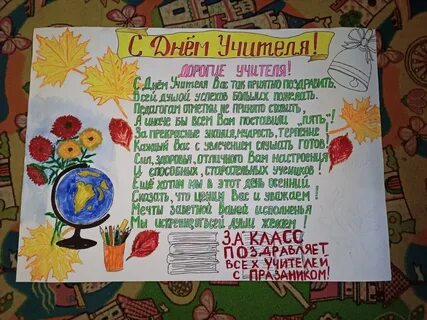 С Днём Учителя!
ДОРОГИЕ УЧИТЕЛЯ!
С Днём Учителя Вас так приятно поздравить,
Всей душой успехов больших пожелать.
Педагогам отметки не принято ставить,
А иначе бы всем Вам поставили „пять"!
За прекрасные знания, мудрость, терпение
Каждый Вас с увлечением слушать готов!
Сил, здоровья, отличного Вам настроения
И способных, старательных учеников!
Ещё хотим мы в этот день осенний
Сказать, что ценим Вас и уважаем!
Мечты заветной Вашей исполненья
Мы искренне всей души желаем!
3А КЛАСС
ПОЗДРАВЛЯЕТ
ВСЕХ УЧИТЕЛЕЙ
С ПРАЗНИКОМ!